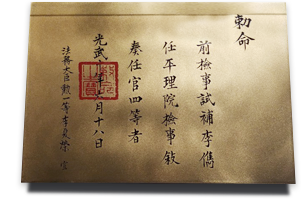 勅命
前檢事試補李儁
任平理院檢事敍
奏任官四等者
光武 年 月十八日
法務大臣勲一等李夏榮